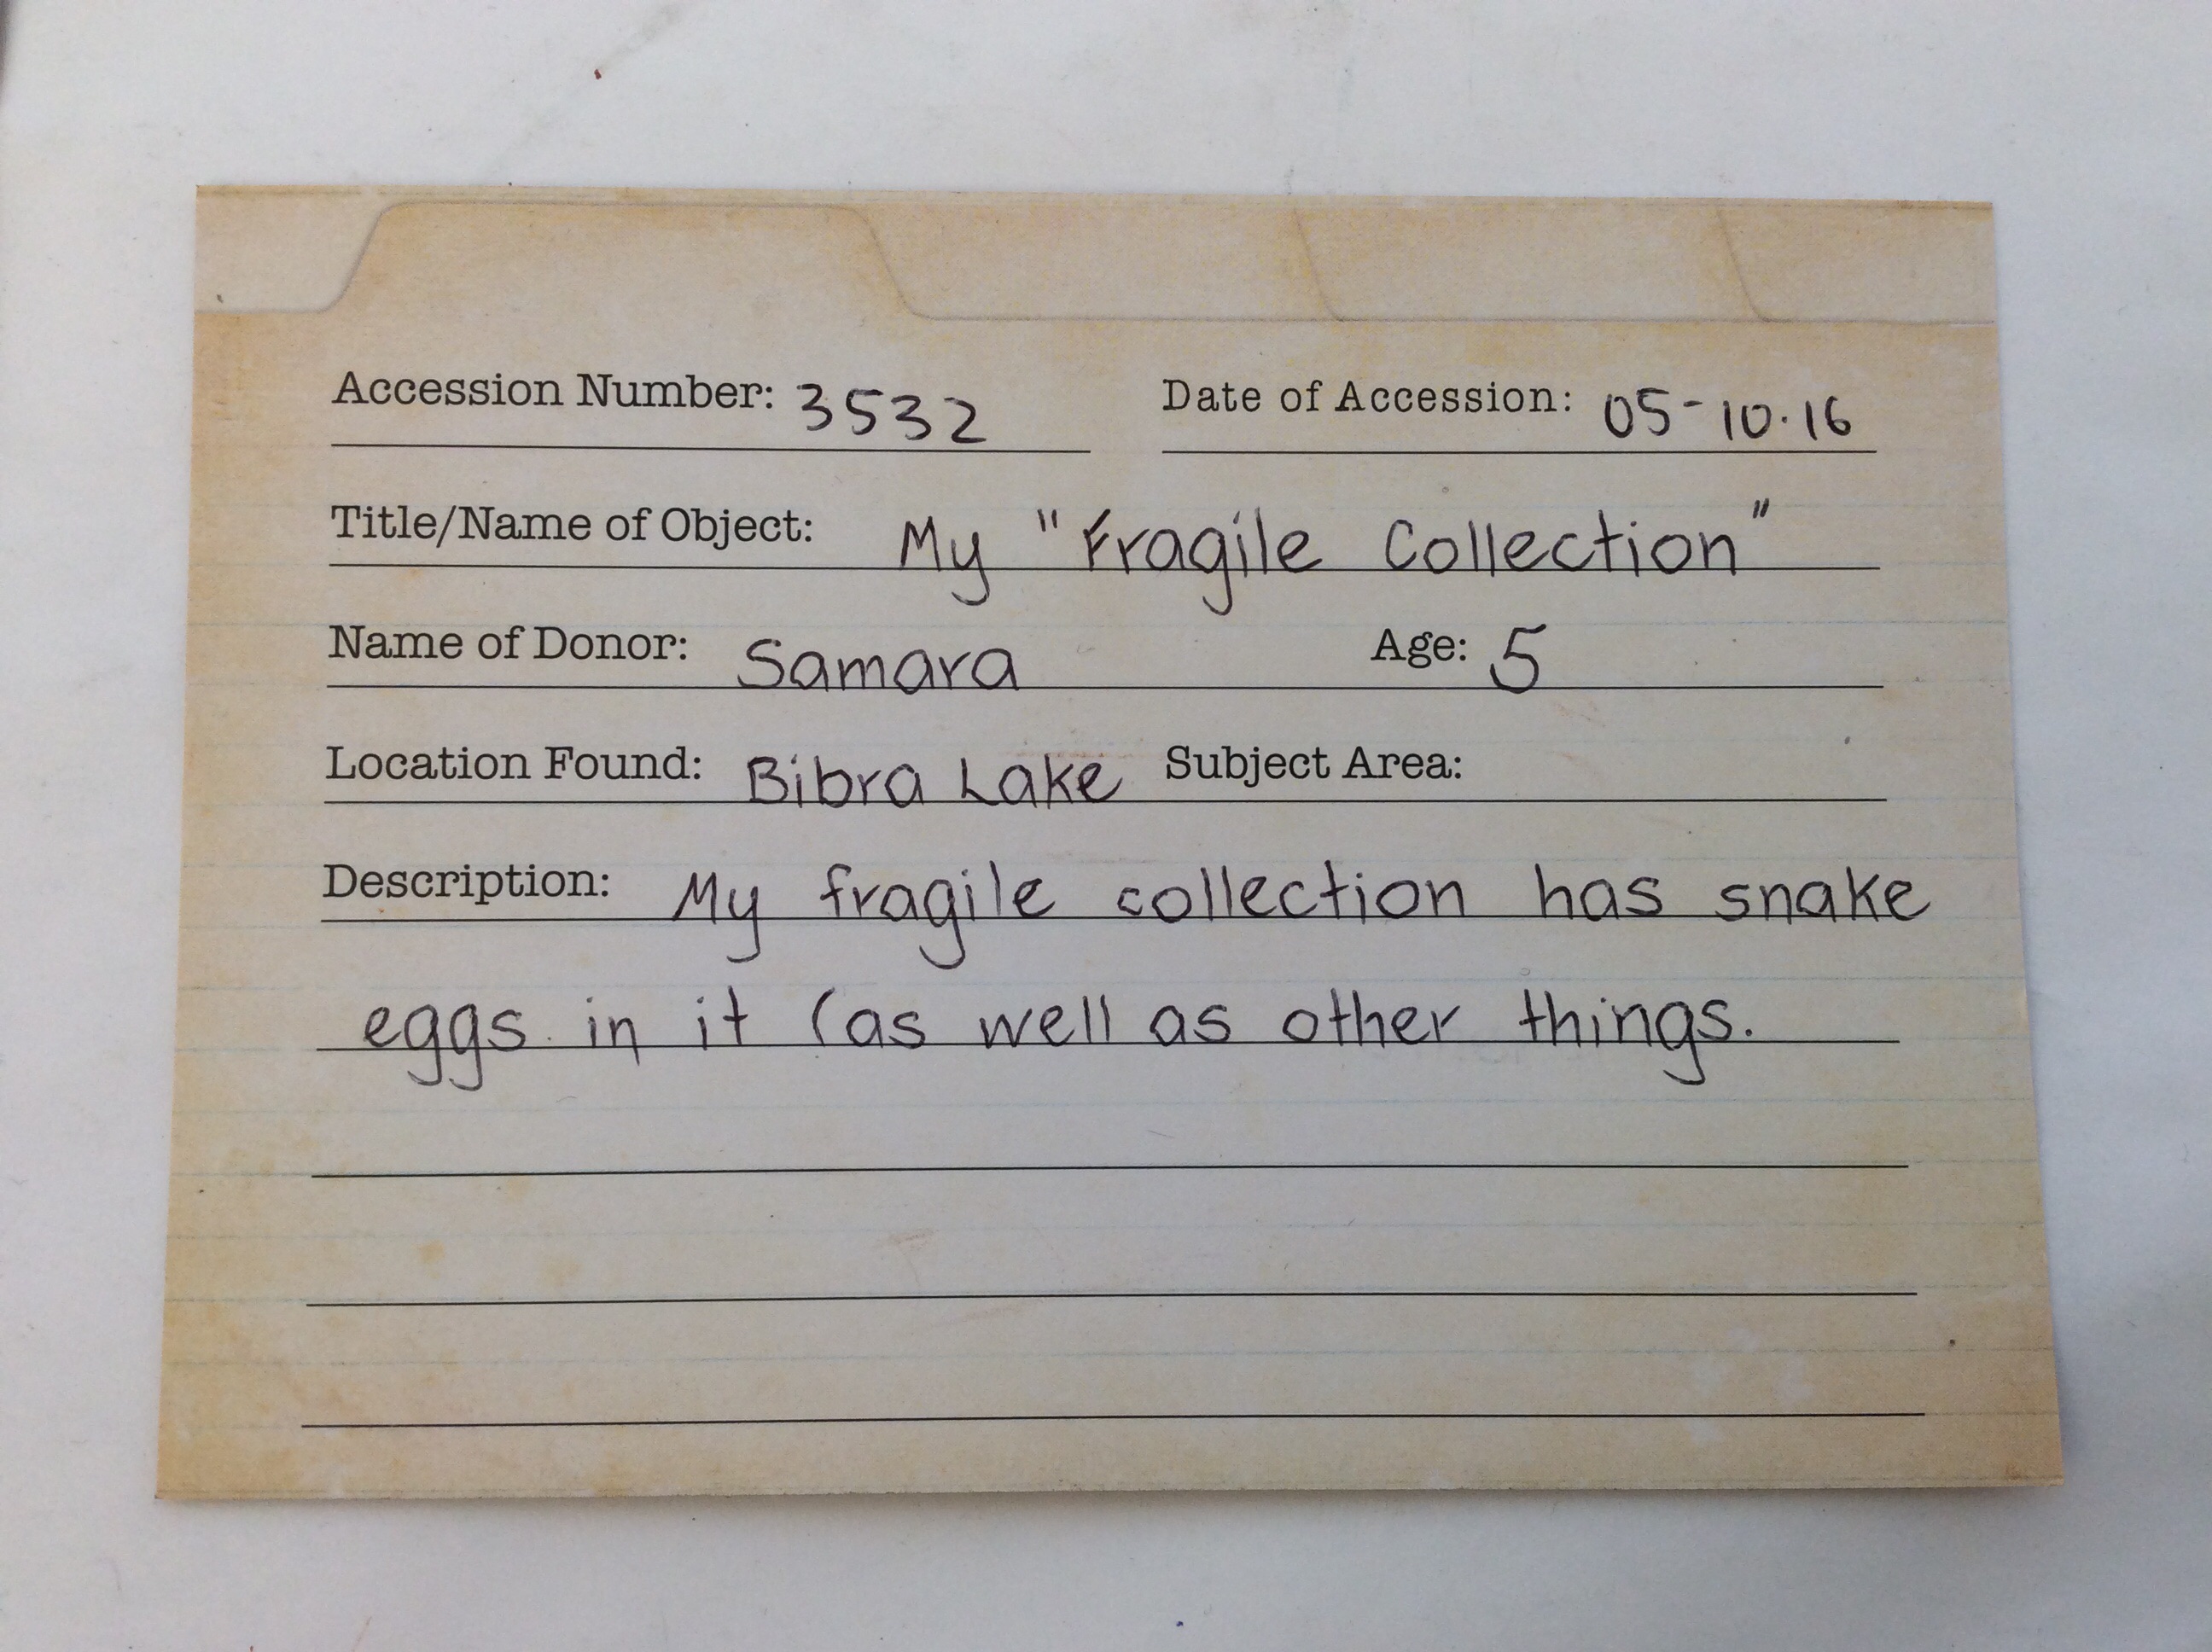 Accession Number: 3532 Date of Accession: 05-10.16
Title/Name of Object: My "Fragile Collection"
Name of Donor: Samara Age: 5
Location Found: Bibra Lake Subject Area:
Description: My fragile collection has snake
eggs in it (as well as other things.